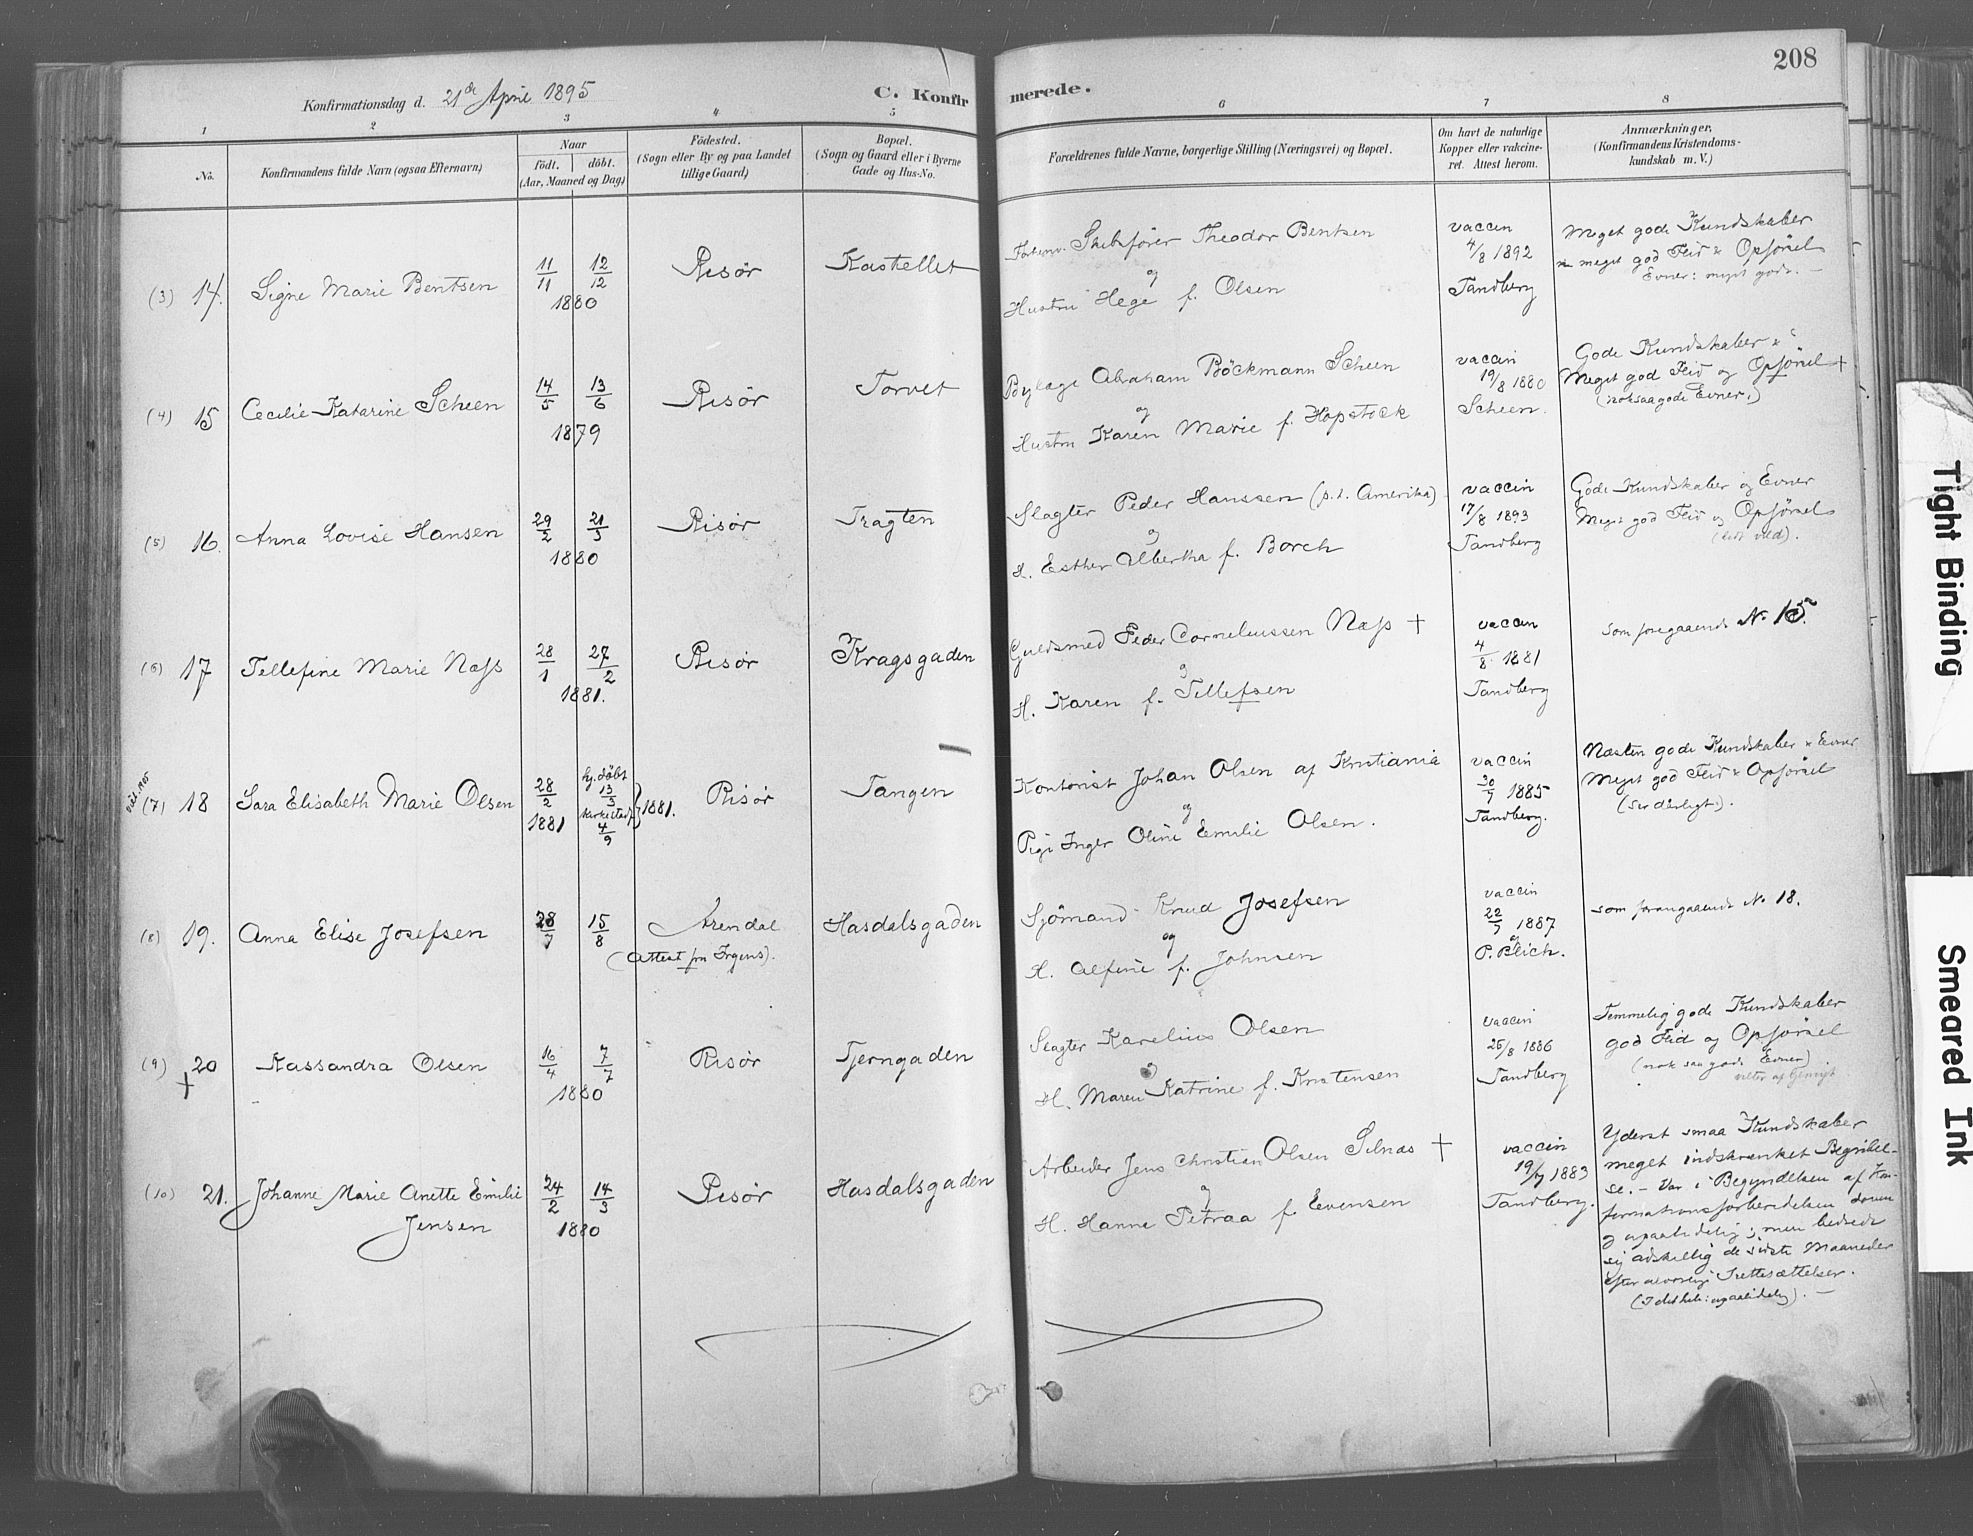 208
Konfirmationsdag d. 21de April 1895
C. Konfirmerede.
1 2 3 4 5 6 7 8
No.
Konfirmandens fulde Navn (ogsaa Efternavn)
Naar
født. døbt.
(Aar, Maaned og Dag)
Fødested.
(Sogn eller By og paa Landet
tillige Gaard)
Bopæl.
(Sogn og Gaard eller i Byerne
Gade og Hus-No.
Forældrenes fulde Navne, borgerlige Stilling (Næringsvei) og Bopæl.
Om havt de naturlige
Kopper eller vakcine-
ret. Attest herom.
Anmærkninger.
(Konfirmandens Kristendoms-
kundskab m. V.)
(3) 14. Signe Marie Bentsen 11/11 12/12 1880 Risør Kastellet
Skibsfører Theodor Bentsen
og
Hustru Hege f. Olsen
vaccin
4/8 1892
Tandberg
Meget gode Kundskaber
meget god Flid & Opførsel
Evner: meget gode. —
(4) 15 Cecilie Katarine Scheen 14/5 13/6 1879 Risør Torvet
Bylæge Abraham Böckmann Scheen
og
Hustru Karen Marie f. Hopstock
vaccin
19/8 1880
Scheen.
Gode Kundskaber &
Meget god Flid og Opførsel +
(noksaa gode Evner.)
(5) 16. Anna Lovise Hansen 29/2 21/3 1880 Risør Tragten
Slagter Peder Hanssen (p. t. Amerika)
og
H. Esther Albertha f. Borch
vaccin
17/8 1893
Tandberg
Gode Kundskaber og Evner
Meget god Flid og Opførsel
(lidt vild).
(6) 17 Tellefine Marie Næss 28/1 27/2 1881. Risør Kragsgaden
Guldsmed Peder Corneliussen Næss +
og
H. Karen f. Tellefsen
vaccin
4/8 1881
Tandberg
som foregaaende No 15.
(7) 18 Sara Elisabeth Marie Olsen 28/2 1881 hj. døbt 13/3 4/9 1881. Risør Tangen
Kontorist Johan Olsen af Kristiania
og
Pige Inger Oline Emilie Olsen.
vaccin
30/7 1885
Tandberg.
Næsten gode Kundskaber & Evner
Meget god Flid & Opførsel
(ser dårligt).
(8) 19. Anna Elise Josefsen 28/7 15/8 Arendal Hasdalsgaden
(Attest fra Irgens).
Sjömand Knud Josefsen
og
H. Alfine f. Johnsen
vaccin
22/7 1887
P. Bleich.
som forangaaende No 18.
(9) 20 + Kassandra Olsen 16/4 7/7 1880 Risør Tjerngaden
Slagter Karelius Olsen
og
H. Maren Katrine f. Kristensen
vaccin
25/8 1886
Tandberg
Temmelig gode Kundskaber
god Flid og Opførsel
(nok saa gode Evner).
(10) 21. Johanne Marie Anette Emilie
Jensen 24/2 14/3 1880 Risør Hasdalsgaden
Arbeider Jens Christian Olsen Silnæs +
og
H. Hanne Petraa f. Evensen
vaccin
19/7 1883
Tandberg.
Yderst smaa Kundskaber
meget indskrænket Begribel-
se. — Var i Begyndelsen af Kon-
firmationsforberedelsen doven
og upaalidelig; men bedrede
sig adskillig de sidste Maaneder
efter alvorlige Irettesættelser.
(I det hele: upaalidelig). —
Tight Binding
Smeared Ink